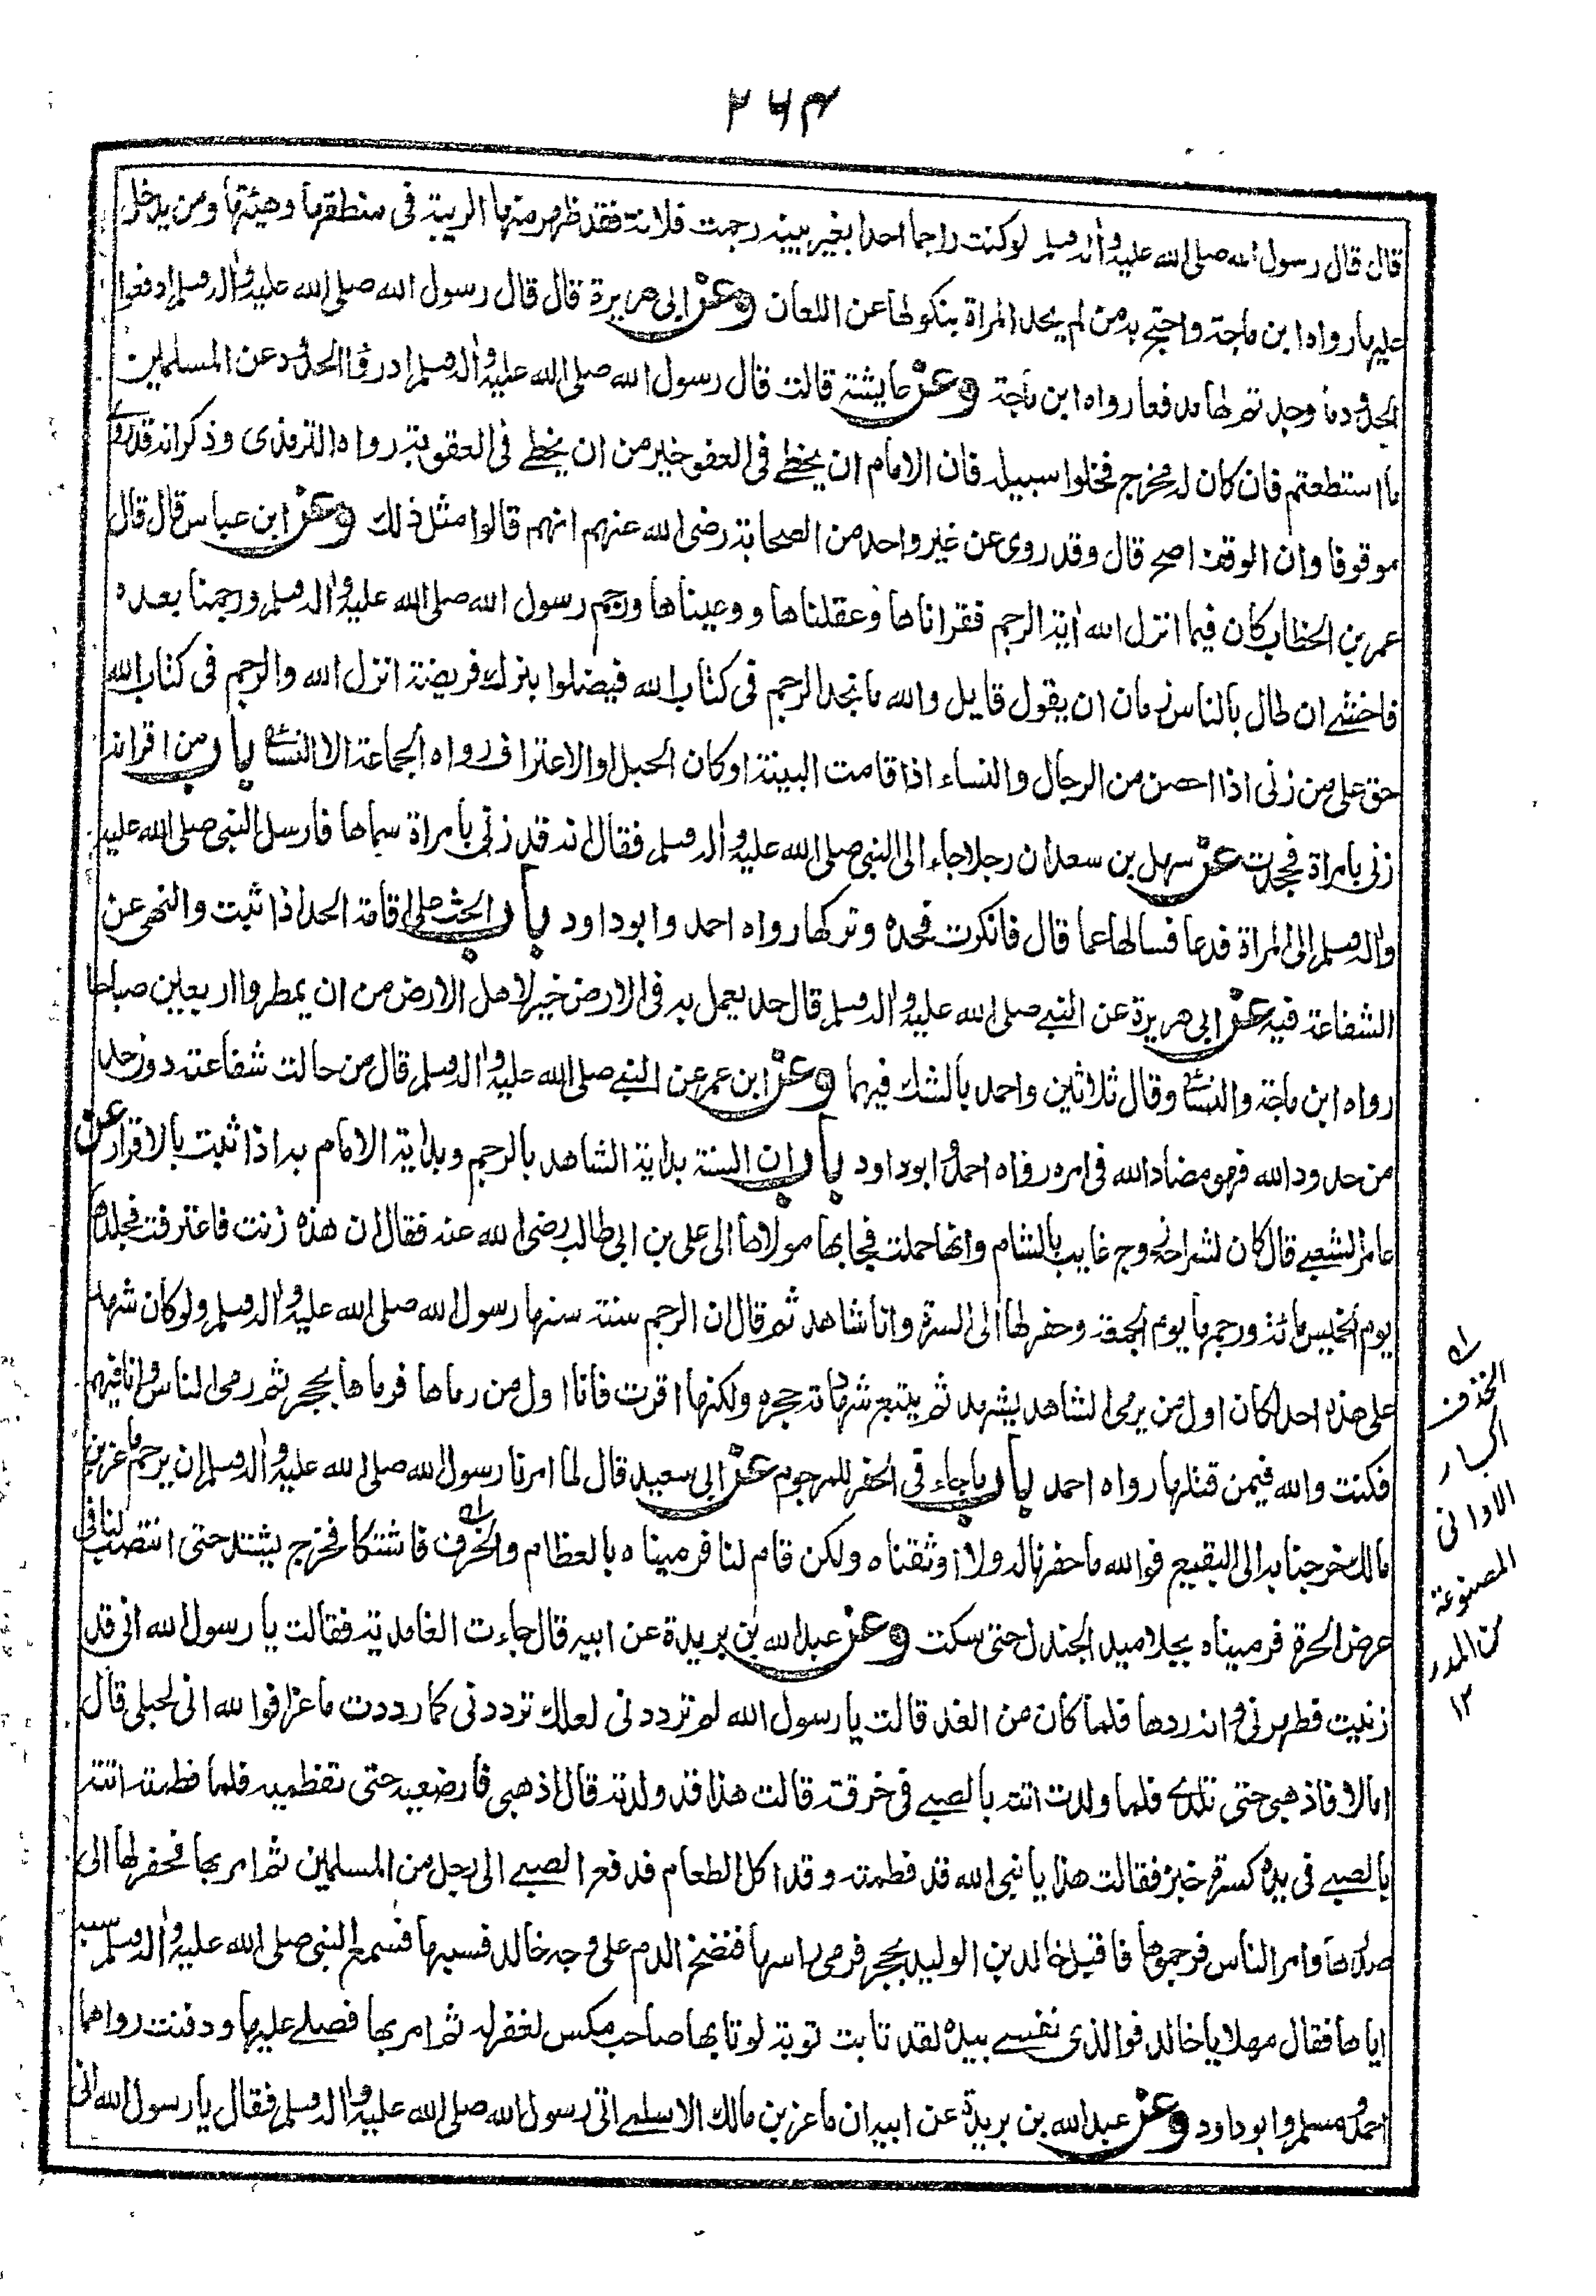 ٢٦٤
قال قال رسول الله صلى الله عليه واله وسلم لو كنت راجما احدا بغير بينه رجمت فلانة فقد ظهر منها الريبة فى منطقها وهيئتها ومن يدخل
عليها رواه ابن ماجة واحتج به من لم يحد المراة بنكولها عن اللعان وعن ابى هريرة قال قال رسول الله صلى الله عليه واله وسلم ادفعوا
الحدود ما وجدتم لها مدفعا رواه ابن ماجة وعن عايشة قالت قال رسول الله صلى الله عليه واله وسلم ادرؤا الحدود عن المسلمين
ما استطعتم فان كان له مخرج فخلوا سبيله فان الامام ان يخطئ فى العفو خير من ان يخطئ فى العقوبة رواه الترمذى وذكر انه قد روى
موقوفا وان الوقف اصح قال وقد روى عن غير واحد من الصحابة رضى الله عنهم انهم قالوا مثل ذلك وعن ابن عباس قال قال
عمر بن الخطاب كان فيما انزل الله اية الرجم فقراناها وعقلناها ووعيناها ورجم رسول الله صلى الله عليه واله وسلم ورجمنا بعده
فاخشى ان طال بالناس زمان ان يقول قايل والله ما نجد الرجم فى كتاب الله فيضلوا بترك فريضة انزل الله والرجم فى كتاب الله
حق على من زنى اذا احصن من الرجال والنساء اذا قامت البينة او كان الحبل او الاعتراف رواه الجماعة الا النسائى باب من اقر انه
زنى بامراة فجحدت عن سهل بن سعد ان رجلا جاء الى النبى صلى الله عليه واله وسلم فقال انه قد زنى بامراة سماها فارسل النبى صلى الله عليه
واله وسلم الى المراة فدعا فسالها عما قال فانكرت فحده وتركها رواه احمد وابو داود باب الحث على اقامة الحد اذا ثبت والنهى عن
الشفاعة فيه عن ابى هريرة عن النبى صلى الله عليه واله وسلم قال حد يعمل به فى الارض خير لاهل الارض من ان يمطروا اربعين صباحا
رواه ابن ماجة والنسائى وقال ثلاثين واحمد بالشك فيهما وعن ابن عمر عن النبى صلى الله عليه واله وسلم قال من حالت شفاعته دون حد
من حدود الله فهو مضاد الله فى امره رواه احمد وابو داود باب ان السنة بداية الشاهد بالرجم وبداية الامام به اذا ثبت بالاقرار عن
عامر الشعبى قال كان لشراحة زوج غايب بالشام وانها حملت فجا بها مولاها الى على بن ابى طالب رضى الله عنه فقال ان هذه زنت فاعترفت فجلدها
يوم الخميس مائة ورجمها يوم الجمعة وحفر لها الى السرة وانا شاهد ثم قال ان الرجم سنة سنها رسول الله صلى الله عليه واله وسلم ولو كان شهد
على هذه احد لكان اول من يرمى الشاهد يشهد ثم يتبع شهادته حجره ولكنها اقرت فانا اول من رماها فرماها بحجر ثم رمى الناس وانا فيهم
فكنت والله فيمن قتلها رواه احمد باب ما جاء فى الحفر للمرجوم عن ابى سعيد قال لما امرنا رسول الله صلى الله عليه واله وسلم ان يرجم ماعز بن
مالك خرجنا به الى البقيع فوالله ما حفرنا له ولا اوثقناه ولكن قام لنا فرميناه بالعظام والخزف فاشتكا فخرج يشتد حتى انتصب لنا فى
عرض الحرة فرميناه بجلاميد الجندل حتى سكت وعن عبد الله بن بريدة عن ابيه قال جاءت الغامدية فقالت يا رسول الله انى قد
زنيت فطهرنى وانه ردها فلما كان من الغد قالت يا رسول الله لم ترددنى لعلك ترددنى كما رددت ماعزا فوالله انى لحبلى قال
اما لا فاذهبى حتى تلدى فلما ولدت اتته بالصبى فى خرقة قالت هذا قد ولدته قال اذهبى فارضعيه حتى تفطميه فلما فطمته اتته
بالصبى فى يده كسرة خبز فقالت هذا يا نبى الله قد فطمته وقد اكل الطعام فدفع الصبى الى رجل من المسلمين ثم امر بها فحفر لها الى
صدرها وامر الناس فرجموها فاقبل خالد بن الوليد بحجر فرمى راسها فنضخ الدم على وجه خالد فسبها فسمع النبى صلى الله عليه واله وسلم سبه
اياها فقال مهلا يا خالد فوالذى نفسى بيده لقد تابت توبة لو تابها صاحب مكس لغفر له ثم امر بها فصلى عليها ودفنت رواهما
احمد ومسلم وابو داود وعن عبد الله بن بريدة عن ابيه ان ماعز بن مالك الاسلمى اتى رسول الله صلى الله عليه واله وسلم فقال يا رسول الله انى
الخزف
الاوانى
المصنوعة
من المدر
١٢